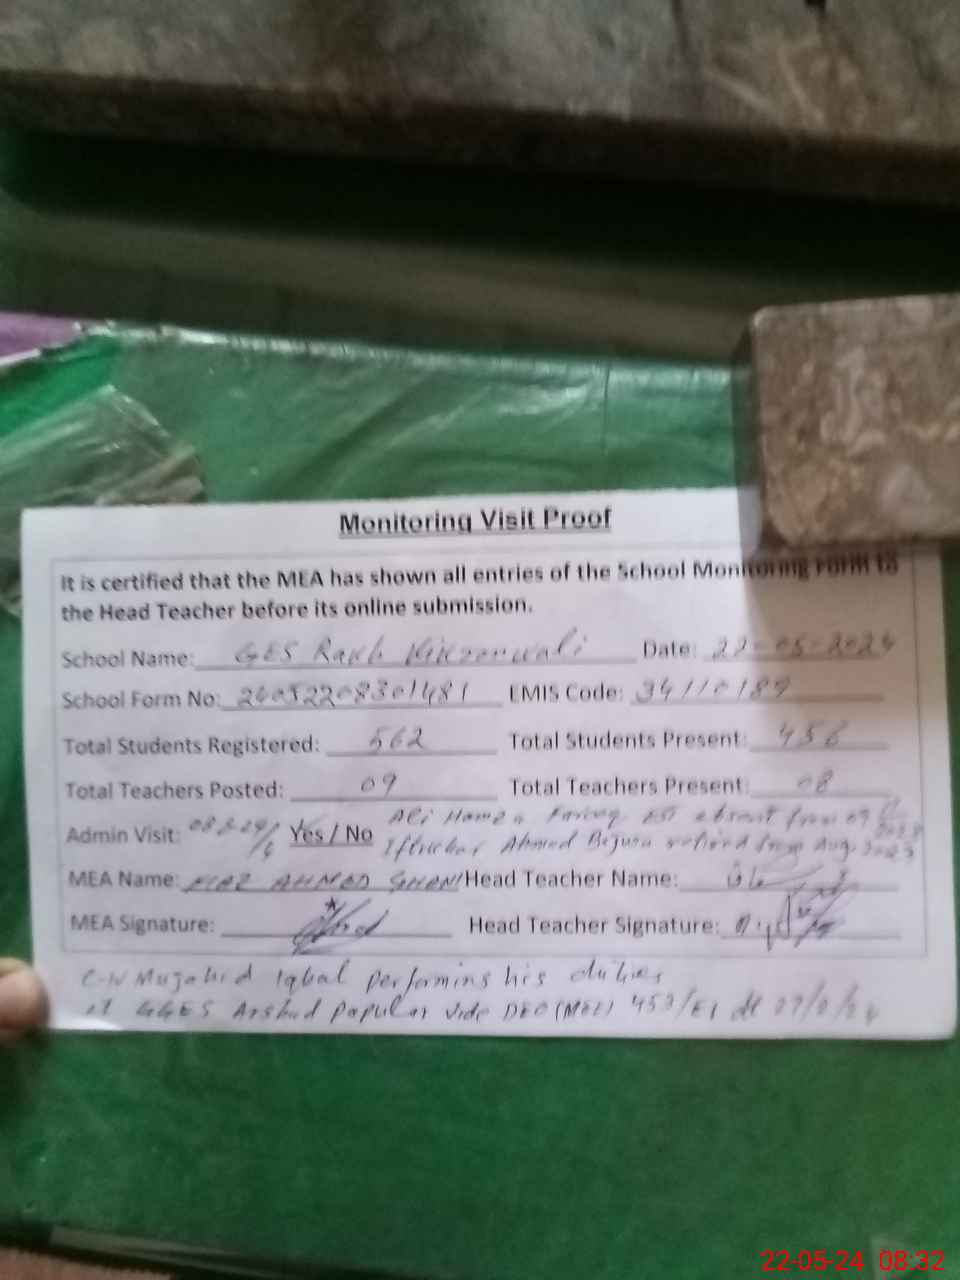 Monitoring Visit Proof
It is certified that the MEA has shown all entries of the School Monitoring Form to
the Head Teacher before its online submission.
School Name: GES Rakh Date: 22-05-2024
School Form No: 24052208301481 EMIS Code: 34110189
Total Students Registered: 562 Total Students Present: 456
Total Teachers Posted: 09 Total Teachers Present: 08
Ali Hamza Farooq EST absent from 09
Admin Visit: Yes / No Iftikhar Ahmed retired from Aug. 2023
MEA Name: AHMAD Head Teacher Name:
MEA Signature: Head Teacher Signature:
C-IV Mujahid Iqbal performing his duties
at GGES Arshad Vide DEO (MEE) 453/E1 dt
22-05-24 08:32